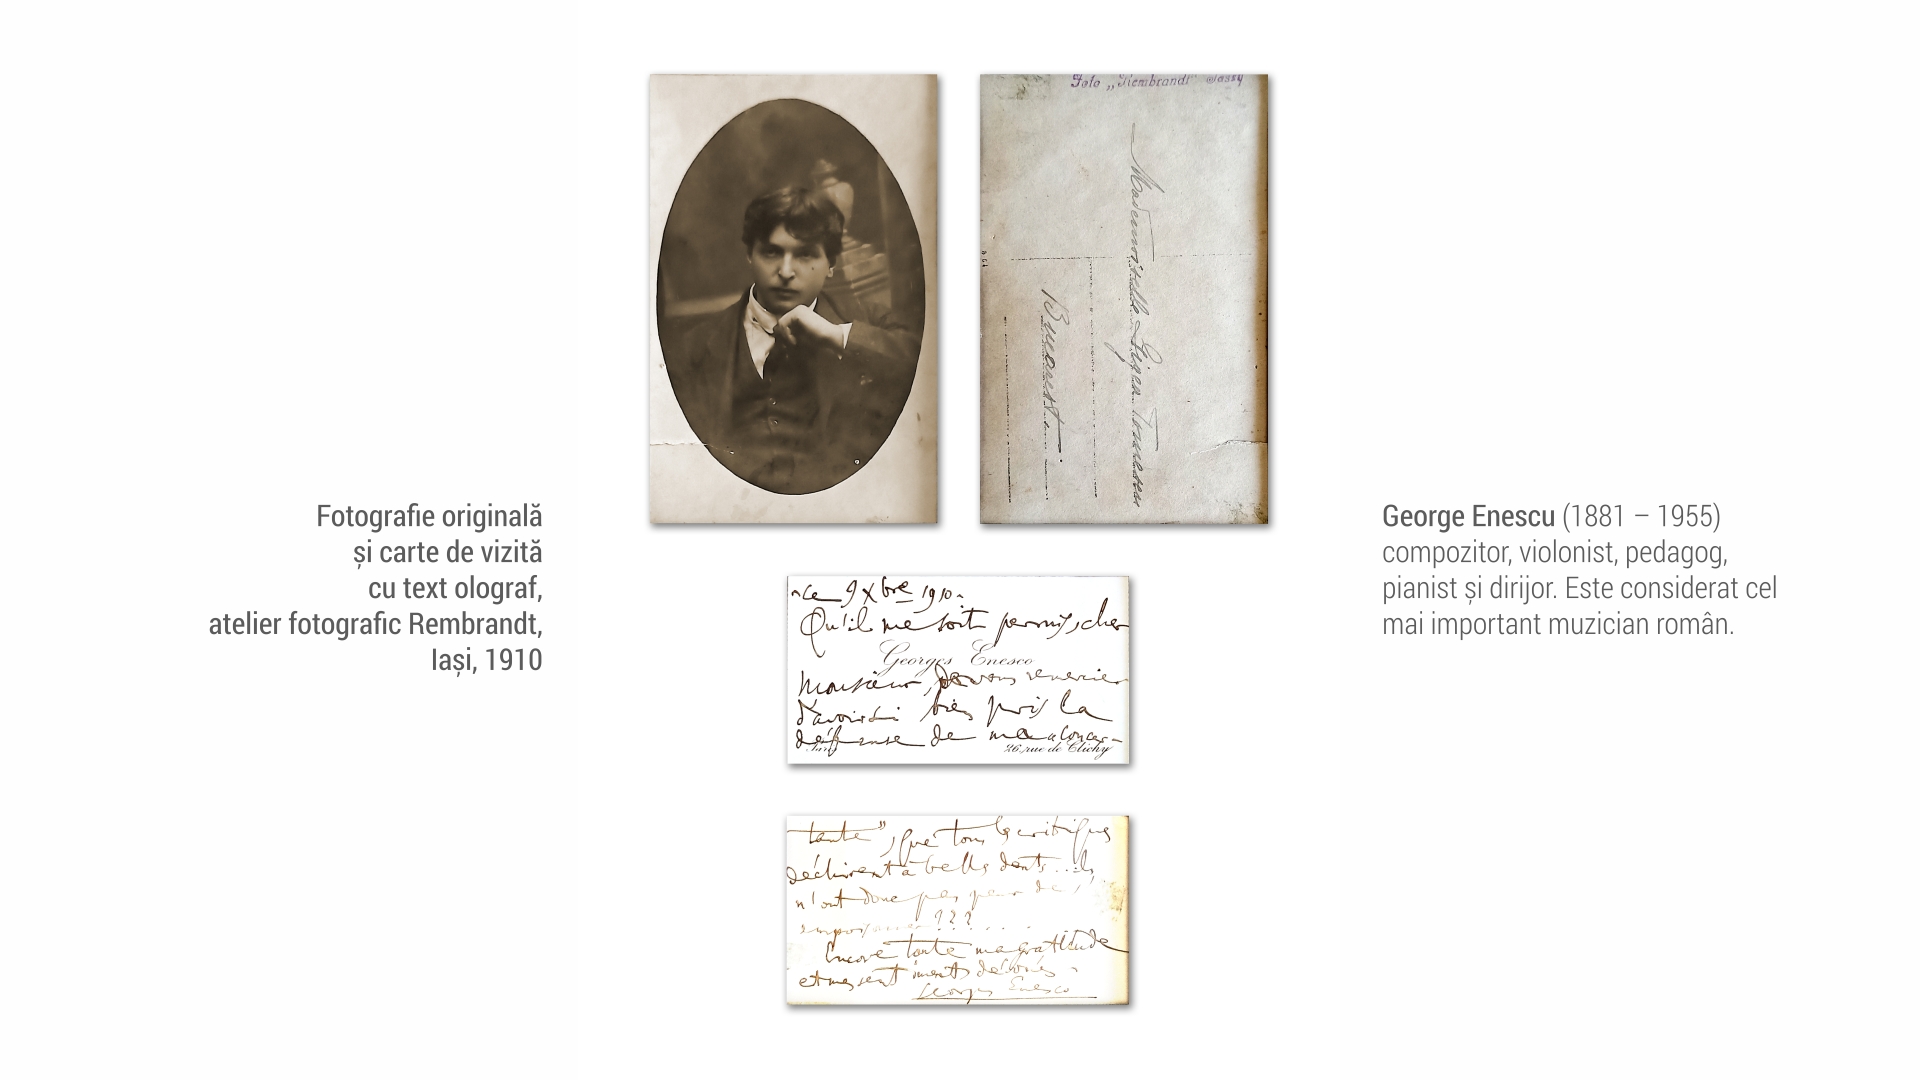 Fotografie originală
și carte de vizită
cu text olograf,
atelier fotografic Rembrandt,
Iași, 1910
Foto „Rembrandt" Jassy
Mademoiselle Ligea
Bucarest
ce 9 Xbre 1910.
Qu'il me soit permis, cher
Georges Enesco
Monsieur, de vous remercier
d'avoir si bien pris la
défense de ma "concer-
26, rue de Clichy
tante", que tous les critiques
déchirent à belles dents... Ils
n'ont donc pas peur de
???
Encore toute ma gratitude
et mes sentiments dévoués.
Georges Enesco
George Enescu (1881 – 1955)
compozitor, violonist, pedagog,
pianist și dirijor. Este considerat cel
mai important muzician român.